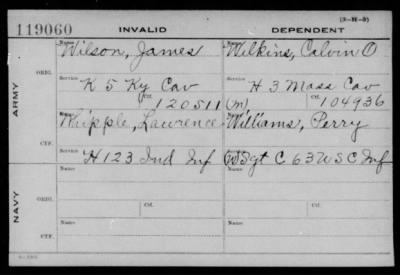 (3-31-3)
119060 INVALID DEPENDENT
Name Name
Wilson, James Wilkins, Calvin O
ORIG.
Service Service
K 5 Ky Cav H 3 Mass Cav
Ctf. 120511 (m) Ctf. 104936
ARMY
Name Name
Whipple, Lawrence Williams, Perry
CTF.
Service Service
H 123 Ind Inf (W) Sgt C 63 U S C Inf
Name Name
ORIG.
Service Service
Ctf. Ctf.
NAVY
Name Name
CTF.
Service Service